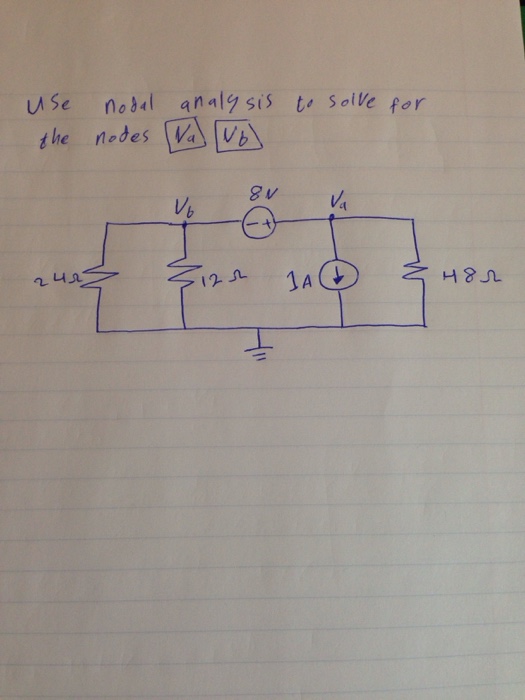 Use nodal analysis to solve for
the nodes Va Vb
8V
Vb
Va
- +
24Ω
12Ω
1A
48Ω